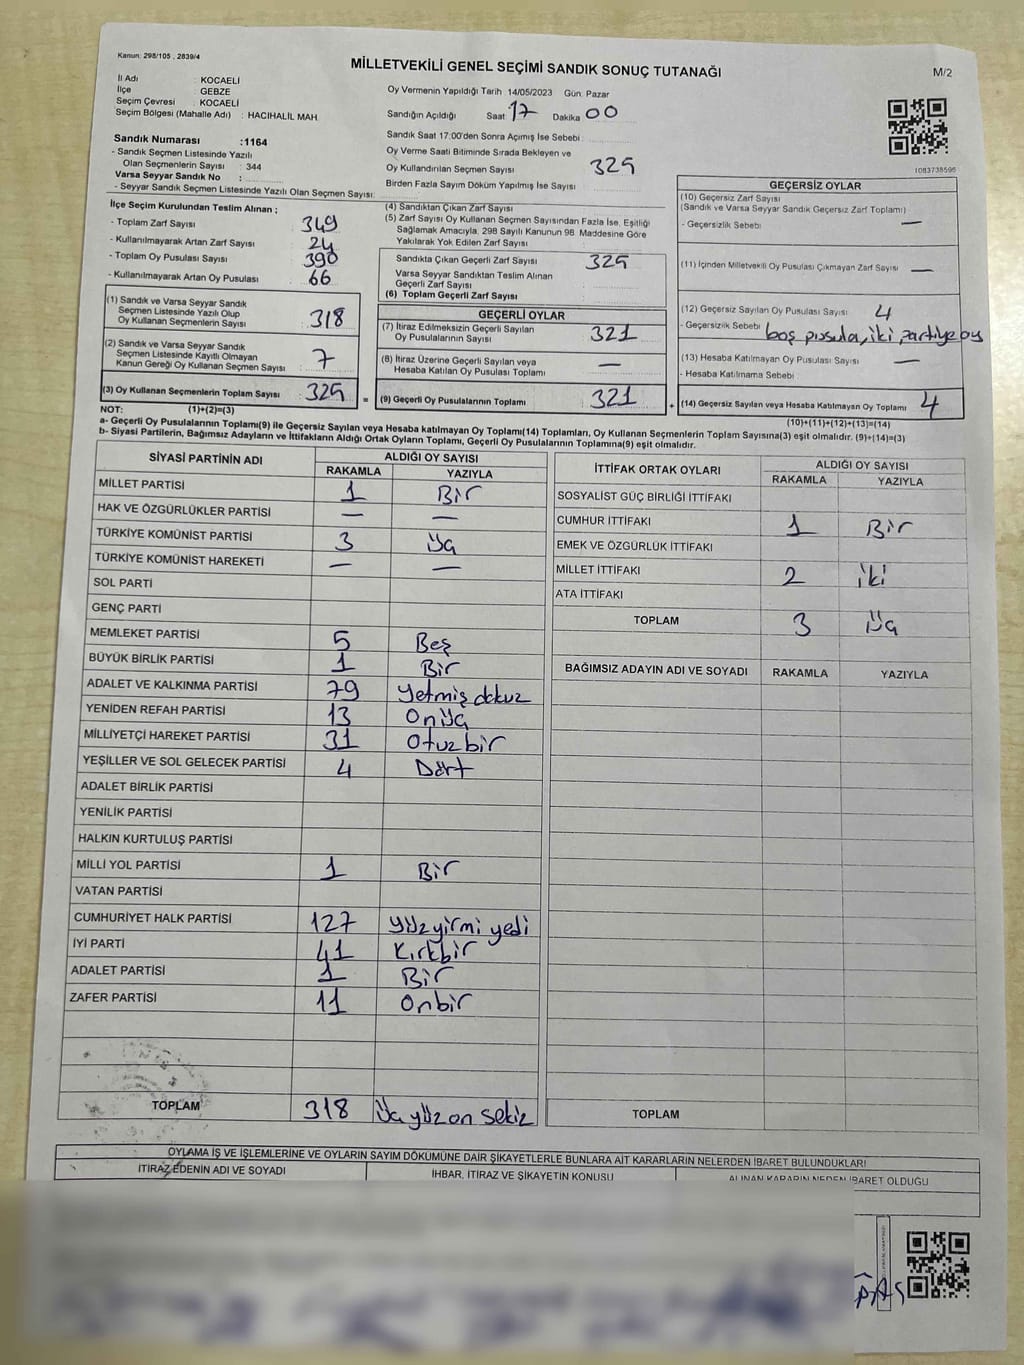 Kanun: 298/105 , 2839/4
MİLLETVEKİLİ GENEL SEÇİMİ SANDIK SONUÇ TUTANAĞI
M/2
İl Adı : KOCAELİ
İlçe : GEBZE
Seçim Çevresi : KOCAELİ
Seçim Bölgesi (Mahalle Adı) : HACIHALİL MAH.
Oy Vermenin Yapıldığı Tarih 14/05/2023 Gün: Pazar
Sandığın Açıldığı Saat 17 Dakika 00
Sandık Saat 17:00'den Sonra Açımış İse Sebebi
Oy Verme Saati Bitiminde Sırada Bekleyen ve
Oy Kullandırılan Seçmen Sayısı 325
Birden Fazla Sayım Döküm Yapılmış İse Sayısı
1083738595
Sandık Numarası :1164
- Sandık Seçmen Listesinde Yazılı
Olan Seçmenlerin Sayısı : 344
Varsa Seyyar Sandık No :
- Seyyar Sandık Seçmen Listesinde Yazılı Olan Seçmen Sayısı:
İlçe Seçim Kurulundan Teslim Alınan ;
- Toplam Zarf Sayısı 349
- Kullanılmayarak Artan Zarf Sayısı 24
- Toplam Oy Pusulası Sayısı 390
- Kullanılmayarak Artan Oy Pusulası 66
(1) Sandık ve Varsa Seyyar Sandık
Seçmen Listesinde Yazılı Olup
Oy Kullanan Seçmenlerin Sayısı 318
(2) Sandık ve Varsa Seyyar Sandık
Seçmen Listesinde Kayıtlı Olmayan
Kanun Gereği Oy Kullanan Seçmen Sayısı 7
(3) Oy Kullanan Seçmenlerin Toplam Sayısı 325 =
(4) Sandıktan Çıkan Zarf Sayısı
(5) Zarf Sayısı Oy Kullanan Seçmen Sayısından Fazla İse, Eşitliği
Sağlamak Amacıyla, 298 Sayılı Kanunun 98 Maddesine Göre
Yakılarak Yok Edilen Zarf Sayısı
Sandıkta Çıkan Geçerli Zarf Sayısı 325
Varsa Seyyar Sandıktan Teslim Alınan
Geçerli Zarf Sayısı
(6) Toplam Geçerli Zarf Sayısı
GEÇERLİ OYLAR
(7) İtiraz Edilmeksizin Geçerli Sayılan
Oy Pusulalarının Sayısı 321
(8) İtiraz Üzerine Geçerli Sayılan veya
Hesaba Katılan Oy Pusulası Toplamı —
(9) Geçerli Oy Pusulalarının Toplamı 321 +
GEÇERSİZ OYLAR
(10) Geçersiz Zarf Sayısı
(Sandık ve Varsa Seyyar Sandık Geçersiz Zarf Toplamı)
- Geçersizlik Sebebi —
(11) İçinden Milletvekili Oy Pusulası Çıkmayan Zarf Sayısı —
(12) Geçersiz Sayılan Oy Pusulası Sayısı 4
- Geçersizlik Sebebi boş pusula, iki partiye oy
(13) Hesaba Katılmayan Oy Pusulası Sayısı —
- Hesaba Katılmama Sebebi
(14) Geçersiz Sayılan veya Hesaba Katılmayan Oy Toplamı 4
NOT: (1)+(2)=(3)
(10)+(11)+(12)+(13)=(14)
a- Geçerli Oy Pusulalarının Toplamı(9) ile Geçersiz Sayılan veya Hesaba katılmayan Oy Toplamı(14) Toplamları, Oy Kullanan Seçmenlerin Toplam Sayısına(3) eşit olmalıdır. (9)+(14)=(3)
b- Siyasi Partilerin, Bağımsız Adayların ve İttifakların Aldığı Ortak Oyların Toplamı, Geçerli Oy Pusulalarının Toplamına(9) eşit olmalıdır.
SİYASİ PARTİNİN ADI ALDIĞI OY SAYISI
RAKAMLA YAZIYLA
MİLLET PARTİSİ 1 Bir
HAK VE ÖZGÜRLÜKLER PARTİSİ — —
TÜRKİYE KOMÜNİST PARTİSİ 3 Üç
TÜRKİYE KOMÜNİST HAREKETİ — —
SOL PARTİ
GENÇ PARTİ
MEMLEKET PARTİSİ 5 Beş
BÜYÜK BİRLİK PARTİSİ 1 Bir
ADALET VE KALKINMA PARTİSİ 79 Yetmiş dokuz
YENİDEN REFAH PARTİSİ 13 Onüç
MİLLİYETÇİ HAREKET PARTİSİ 31 Otuzbir
YEŞİLLER VE SOL GELECEK PARTİSİ 4 Dört
ADALET BİRLİK PARTİSİ
YENİLİK PARTİSİ
HALKIN KURTULUŞ PARTİSİ
MİLLİ YOL PARTİSİ 1 Bir
VATAN PARTİSİ
CUMHURİYET HALK PARTİSİ 127 Yüzyirmi yedi
İYİ PARTİ 41 Kırkbir
ADALET PARTİSİ 1 Bir
ZAFER PARTİSİ 11 Onbir
TOPLAM 318 Üçyüz on sekiz
İTTİFAK ORTAK OYLARI ALDIĞI OY SAYISI
RAKAMLA YAZIYLA
SOSYALİST GÜÇ BİRLİĞİ İTTİFAKI
CUMHUR İTTİFAKI 1 Bir
EMEK VE ÖZGÜRLÜK İTTİFAKI
MİLLET İTTİFAKI 2 iki
ATA İTTİFAKI
TOPLAM 3 Üç
BAĞIMSIZ ADAYIN ADI VE SOYADI RAKAMLA YAZIYLA
TOPLAM
OYLAMA İŞ VE İŞLEMLERİNE VE OYLARIN SAYIM DÖKÜMÜNE DAİR ŞİKAYETLERLE BUNLARA AİT KARARLARIN NELERDEN İBARET BULUNDUKLARI
İTİRAZ EDENİN ADI VE SOYADI İHBAR, İTİRAZ VE ŞİKAYETİN KONUSU ALINAN KARARIN NEDEN İBARET OLDUĞU